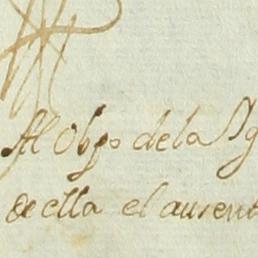 Al Obpo de la Yg
de ella el ausent